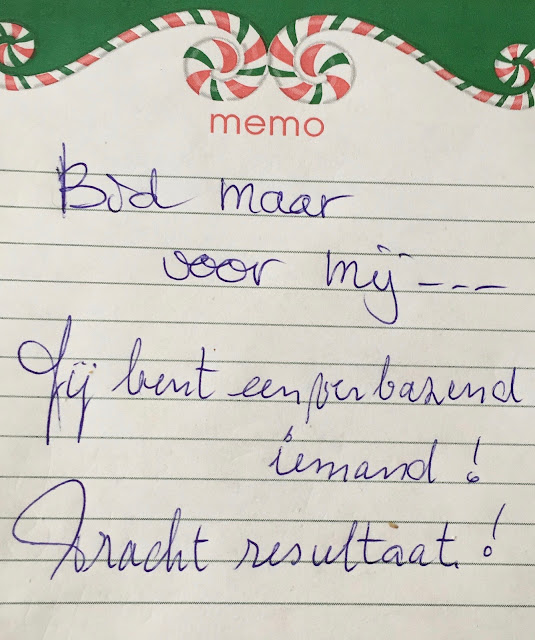 memo
Bid maar
voor mij---
Jij bent een verbazend
iemand!
Kracht resultaat!